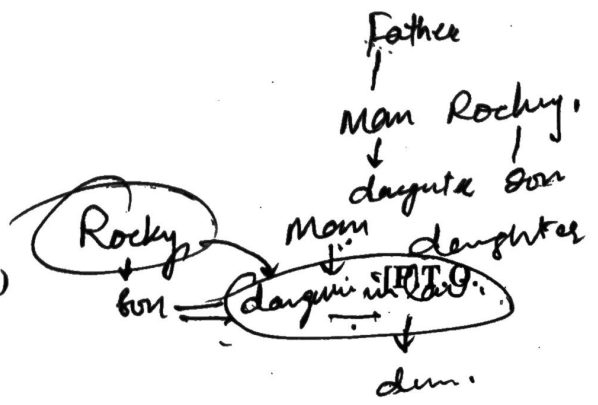 Father
Man Rocky.
daughter son
Rocky Mam daughter
son daughter in law. [P.T.O.